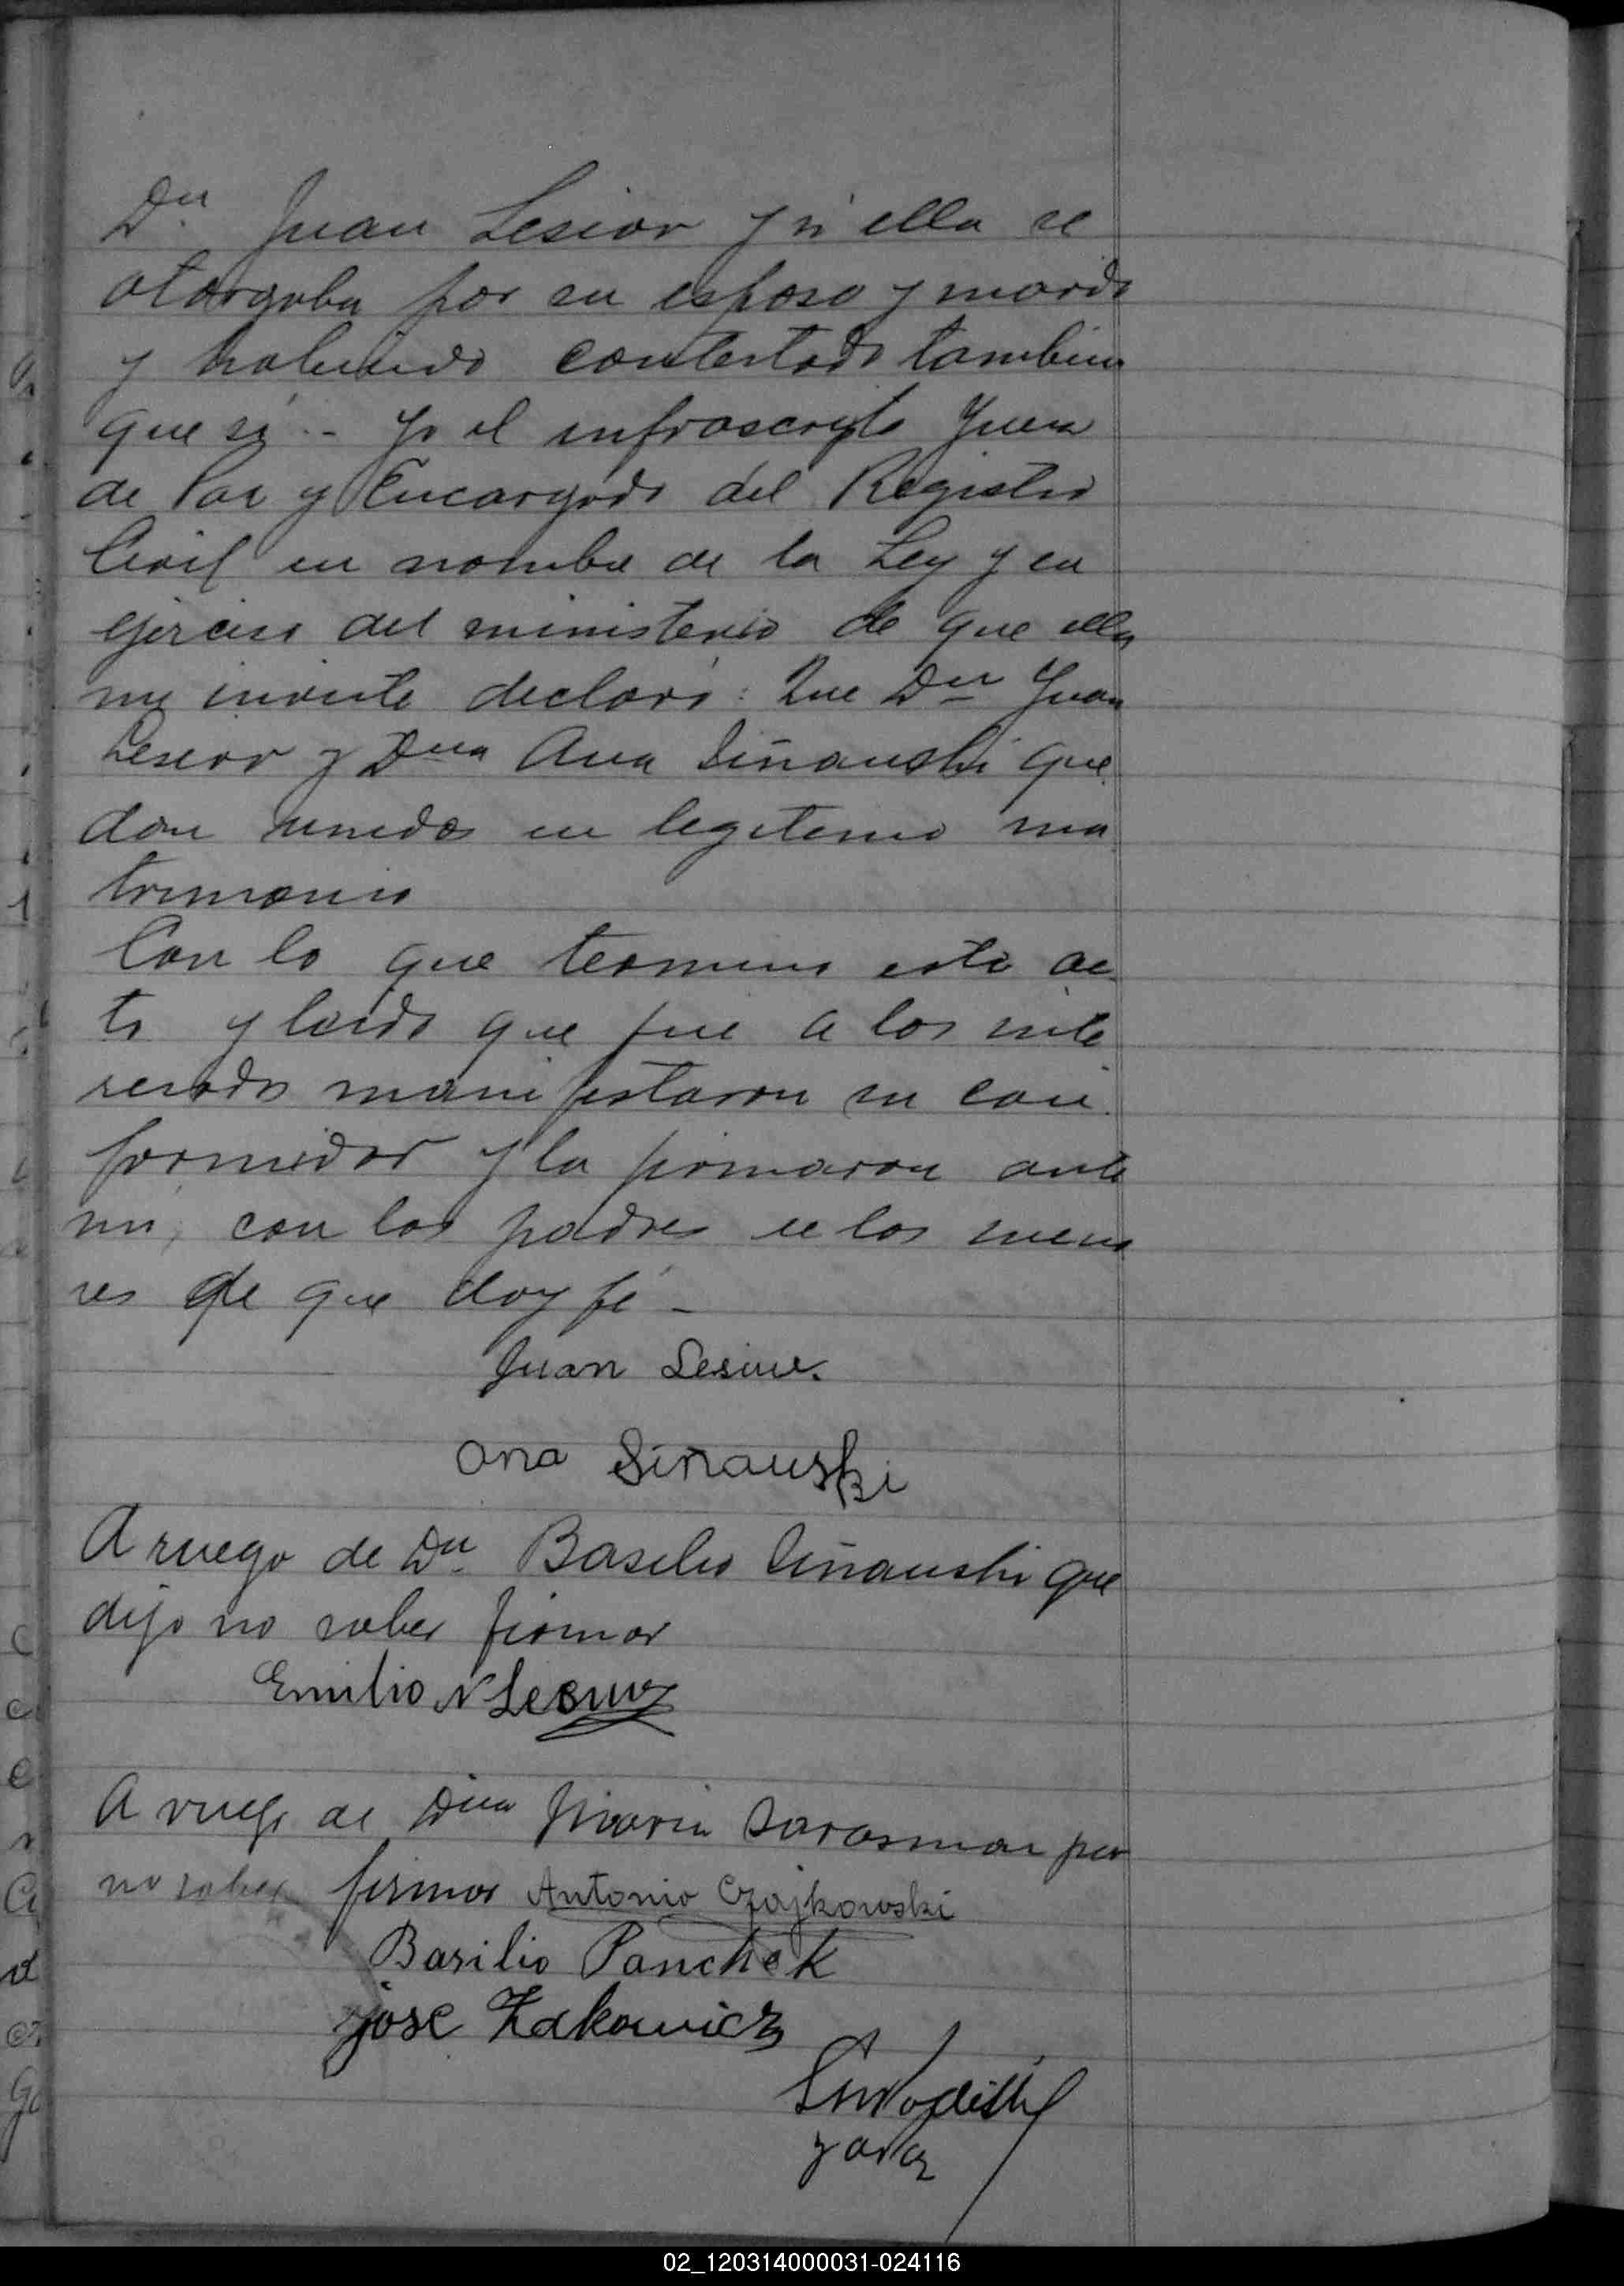 Dn Juan Lesiov y si ella se
otorgaba por su esposo y marido
y habiendo contestado tambien
que si - Yo el infrascrito Juez
de Paz y Encargado del Registro
Civil en nombre de la Ley y en
ejercicio del ministerio de que ella
me inviste declaró: Que Dn Juan
Lesiov y Dna Ana Siñauski que
dan unidos en legitimo ma
trimonio
Con lo que termino este ac
to y leido que fue a los inte
resados manifestaron su con
formidad y la firmaron ante
mi, con los padres de los meno
res de que doy fé -
Juan
Ana Siñauski
A ruego de Dn Basilio Siñauski que
dijo no saber firmar
Emilio N
A ruego de Dna Maria por
no saber firmar Antonio Czajkowski
Basilio Panchek
jose Zakowicz